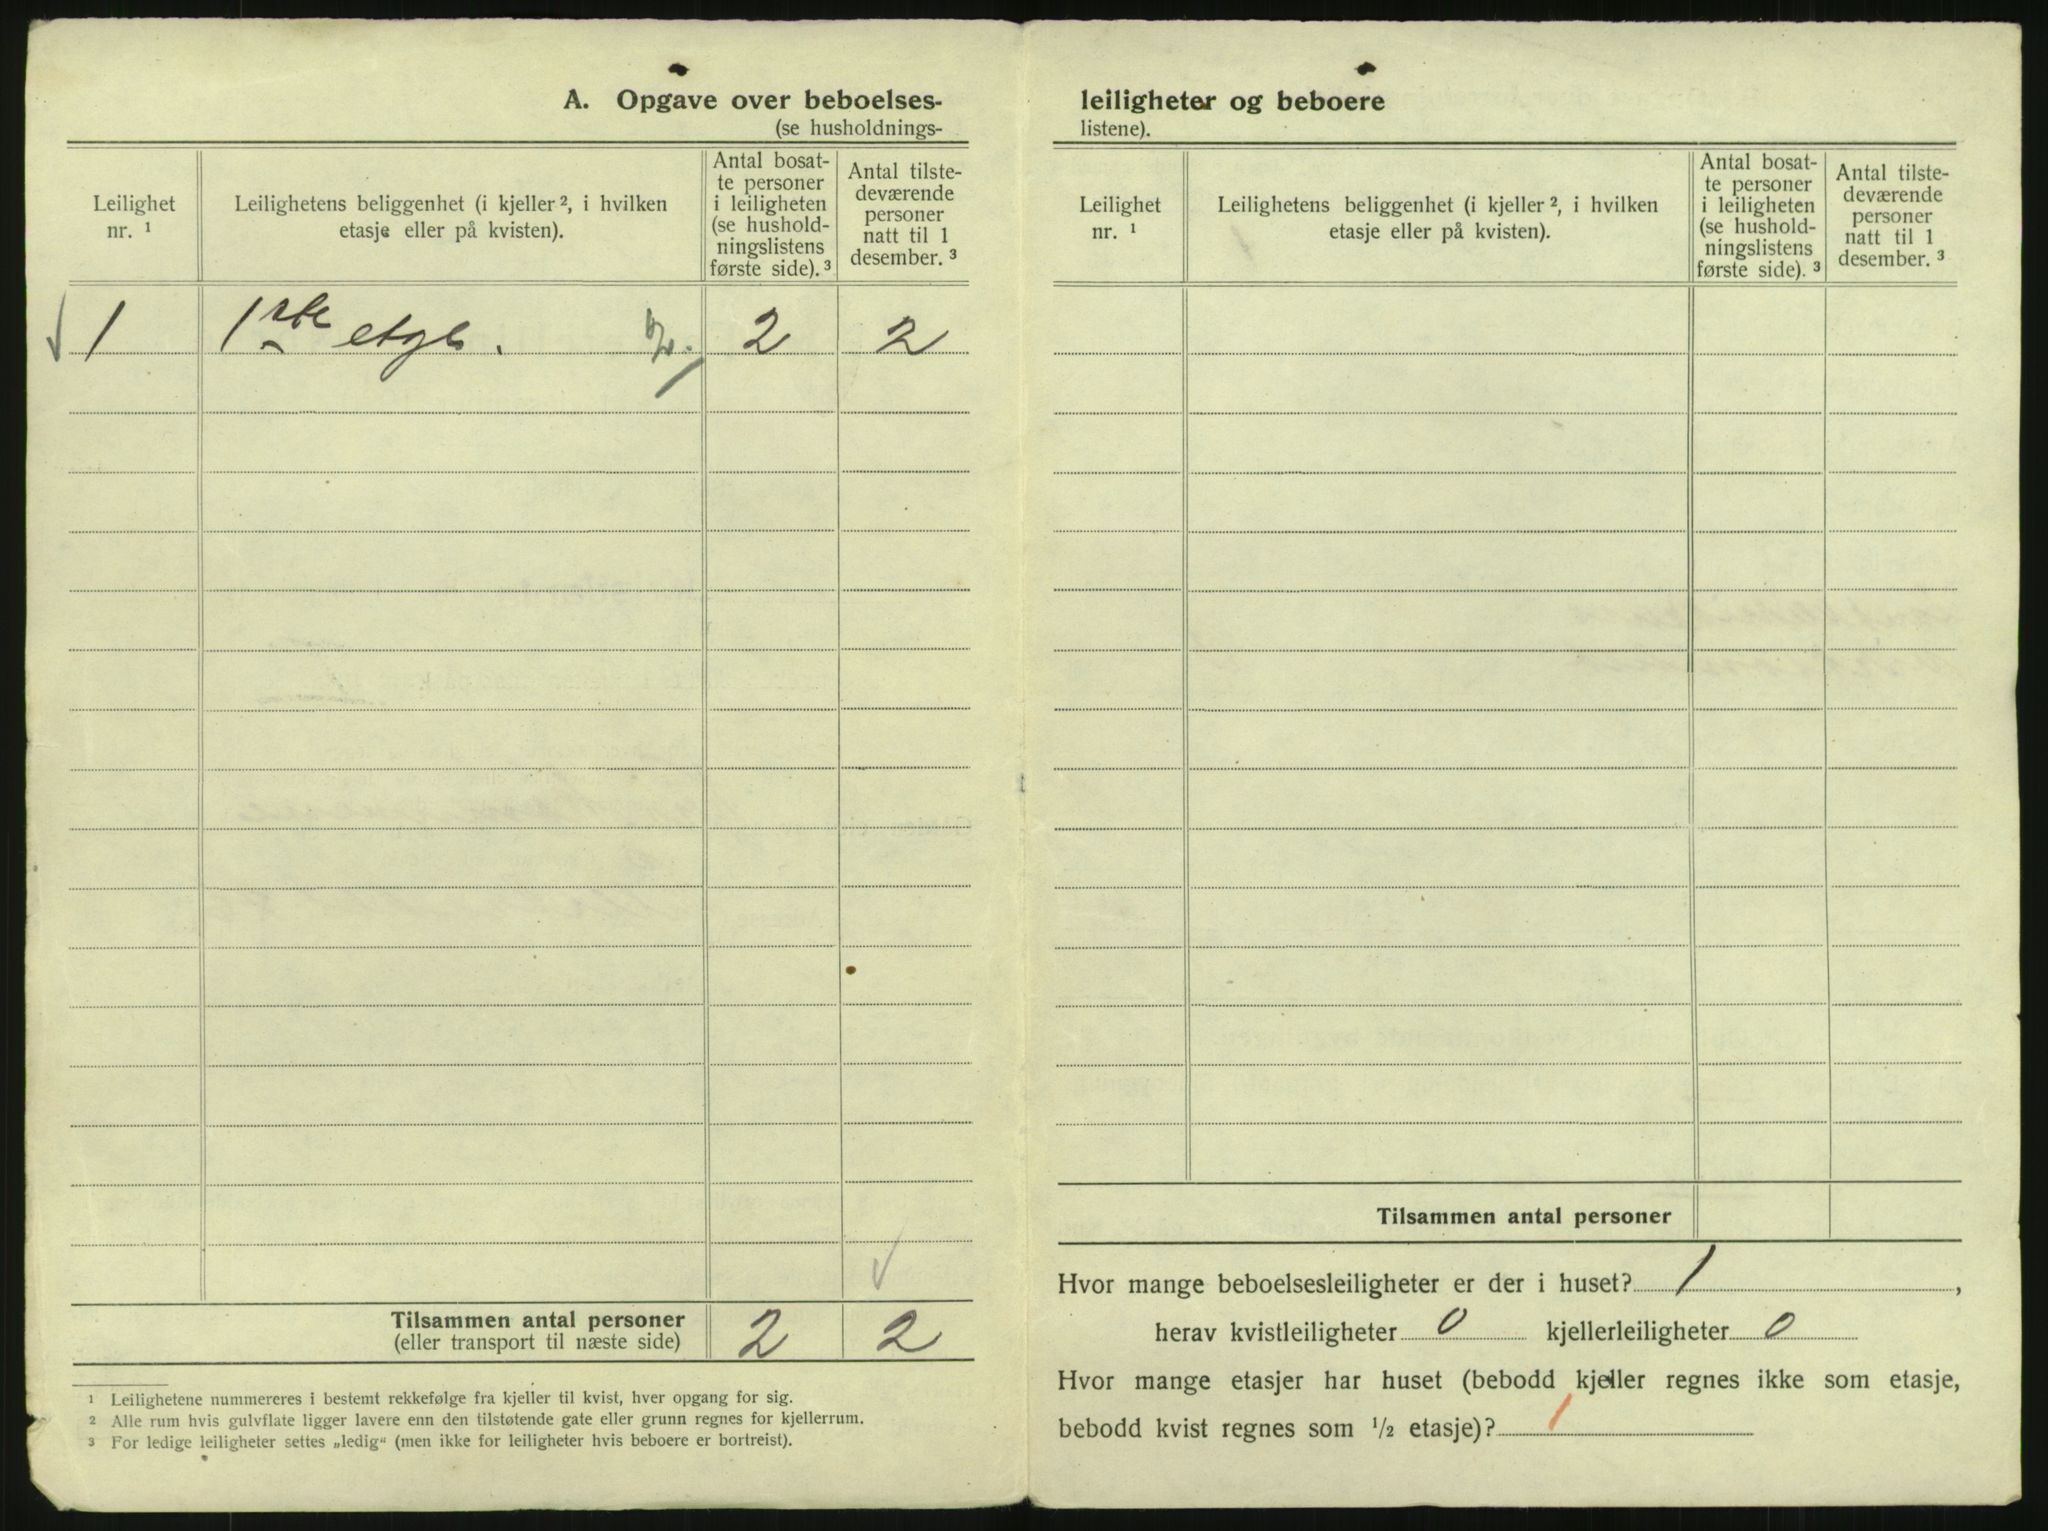 A. Opgave over beboelses-
(se husholdnings-
Leilighet nr. ¹
Leilighetens beliggenhet (i kjeller ², i hvilken etasje eller på kvisten).
Antal bosat-
te personer
i leiligheten
(se hushold-
ningslistens
første side). ³
Antal tilste-
deværende
personer
natt til 1
desember. ³
√ 1 1ste etg. 2 2
√
Tilsammen antal personer 2 2
(eller transport til næste side)
¹ Leilighetene nummereres i bestemt rekkefølge fra kjeller til kvist, hver opgang for sig.
² Alle rum hvis gulvflate ligger lavere enn den tilstøtende gate eller grunn regnes for kjellerrum.
³ For ledige leiligheter settes „ledig“ (men ikke for leiligheter hvis beboere er bortreist).
leiligheter og beboere
listene).
Leilighet nr. ¹
Leilighetens beliggenhet (i kjeller ², i hvilken etasje eller på kvisten).
Antal bosat-
te personer
i leiligheten
(se hushold-
ningslistens
første side). ³
Antal tilste-
deværende
personer
natt til 1
desember. ³
Tilsammen antal personer
Hvor mange beboelsesleiligheter er der i huset? 1,
herav kvistleiligheter 0 kjellerleiligheter 0
Hvor mange etasjer har huset (bebodd kjeller regnes ikke som etasje,
bebodd kvist regnes som ½ etasje)? 1